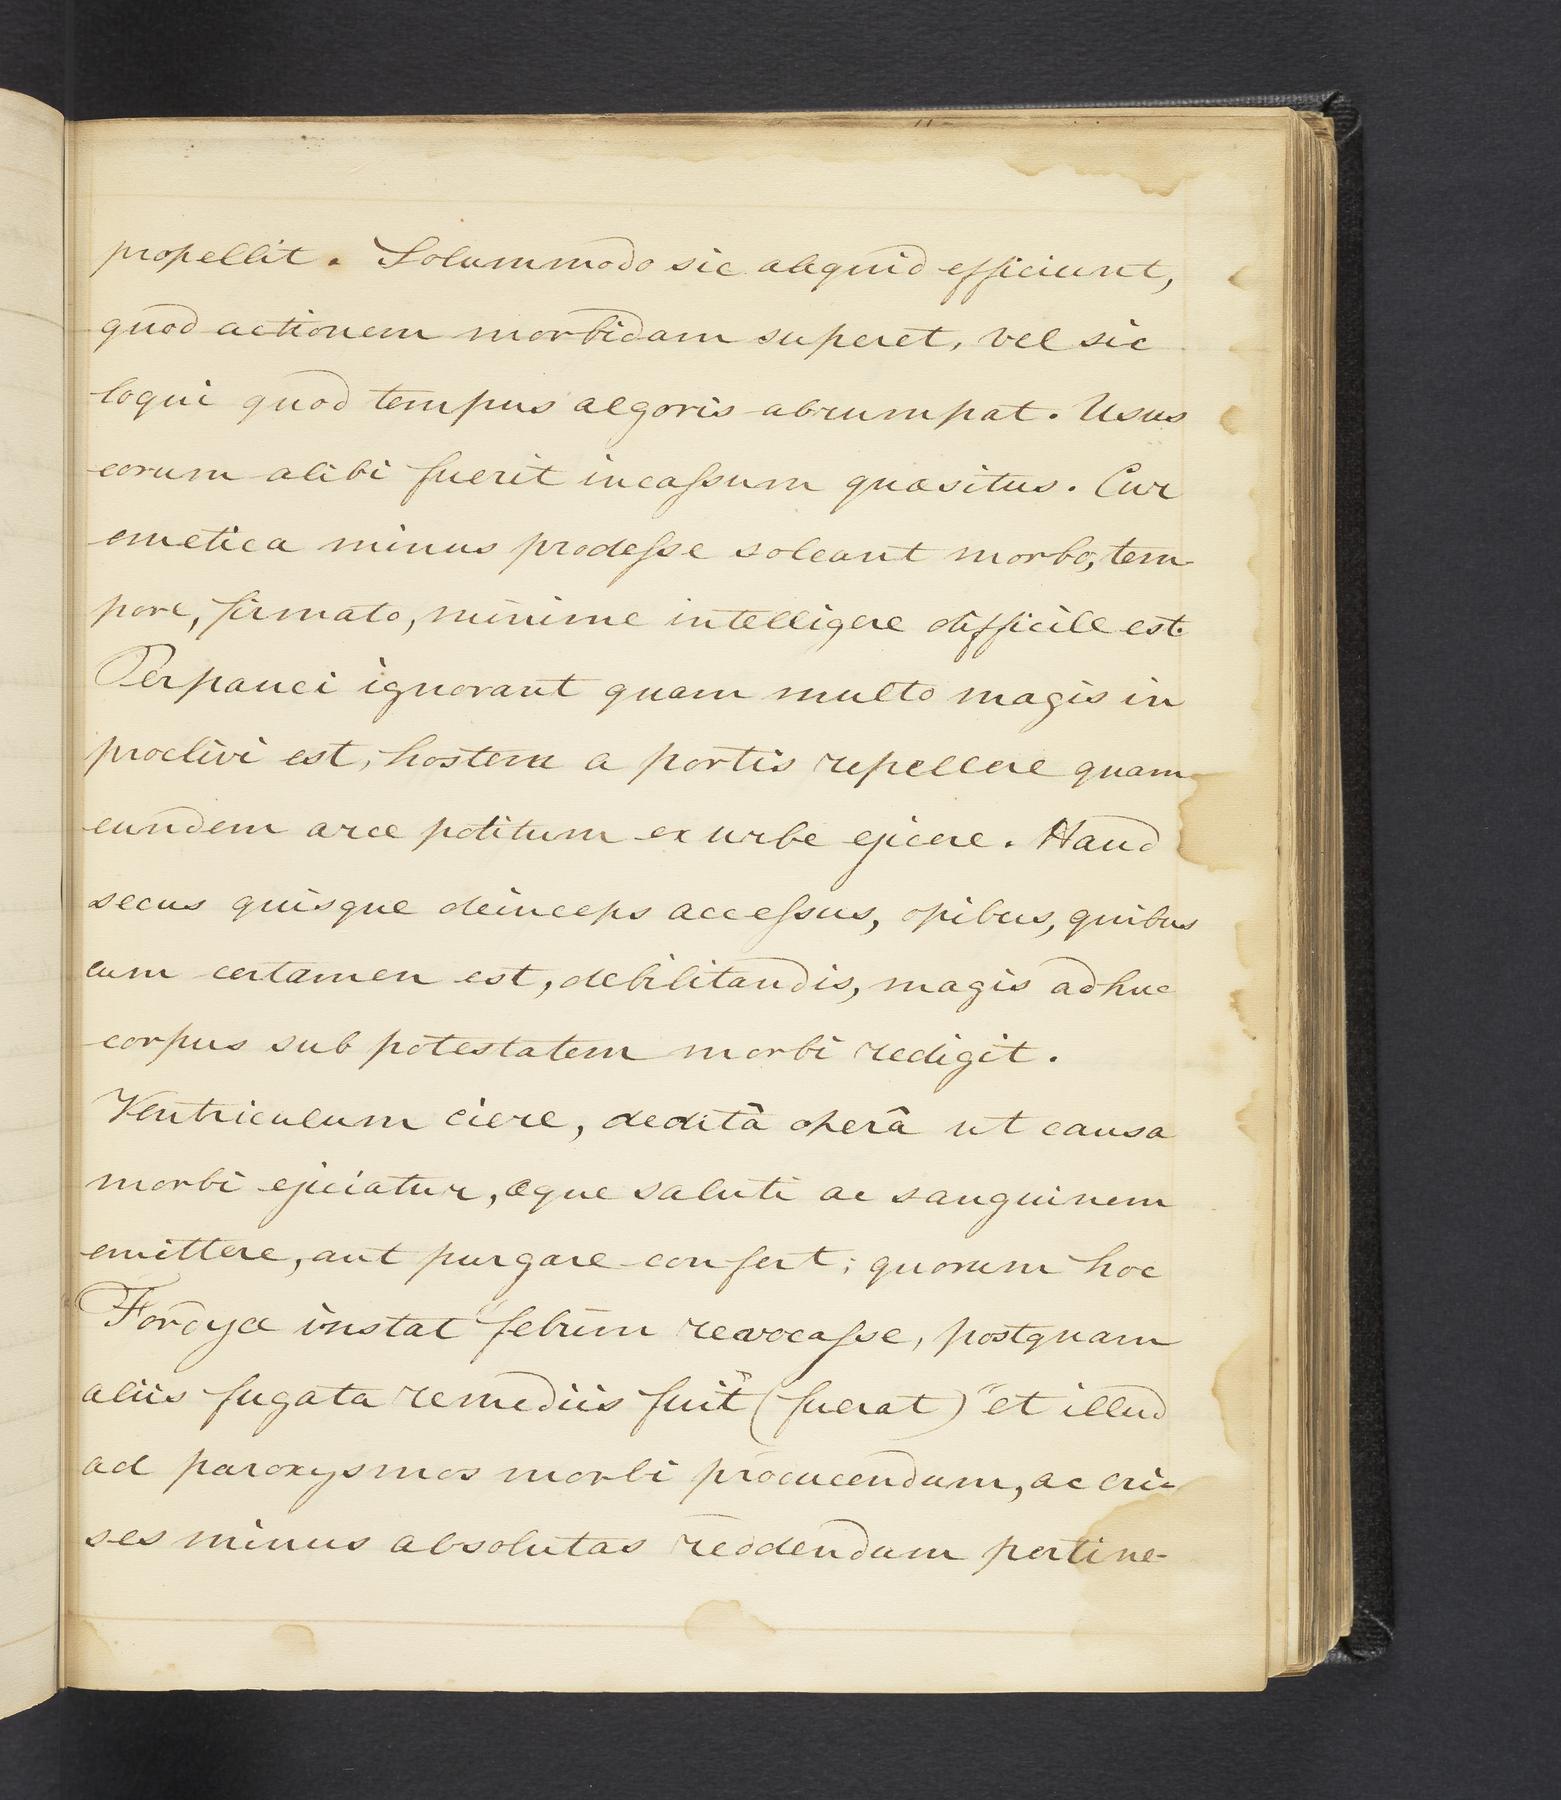 propellit. Solummodo sic aliquid efficiunt,
quod actionem morbidam superet, vel sic
loqui quod tempus algoris abrumpat. Usus
eorum alibi fuerit incaſsum quæsitus. Cur
emetica minus prodeſse soleant morbo, tem-
pore, firmato, minime intelligere difficile est.
Perpauci ignorant quam multo magis in
proclivi est, hostem a portis repellere quam
eundem arce potitum ex urbe ejicere. Haud
secus quisque deinceps acceſsus, opibus, quibus
cum certamen est, debilitandis, magis adhuc
corpus sub potestatem morbi redigit.
Ventriculum ciere, deditâ operâ ut causa
morbi ejiciatur, æque saluti ac sanguinem
emittere, aut purgare confert; quorum hoc
Fordyce instat "febrim revocaſse, postquam
aliis fugata remediis fuit" (fuerat) "et illud
ad paroxysmos morbi producendum, ac cri-
ses minus absolutas reddendum pertine-